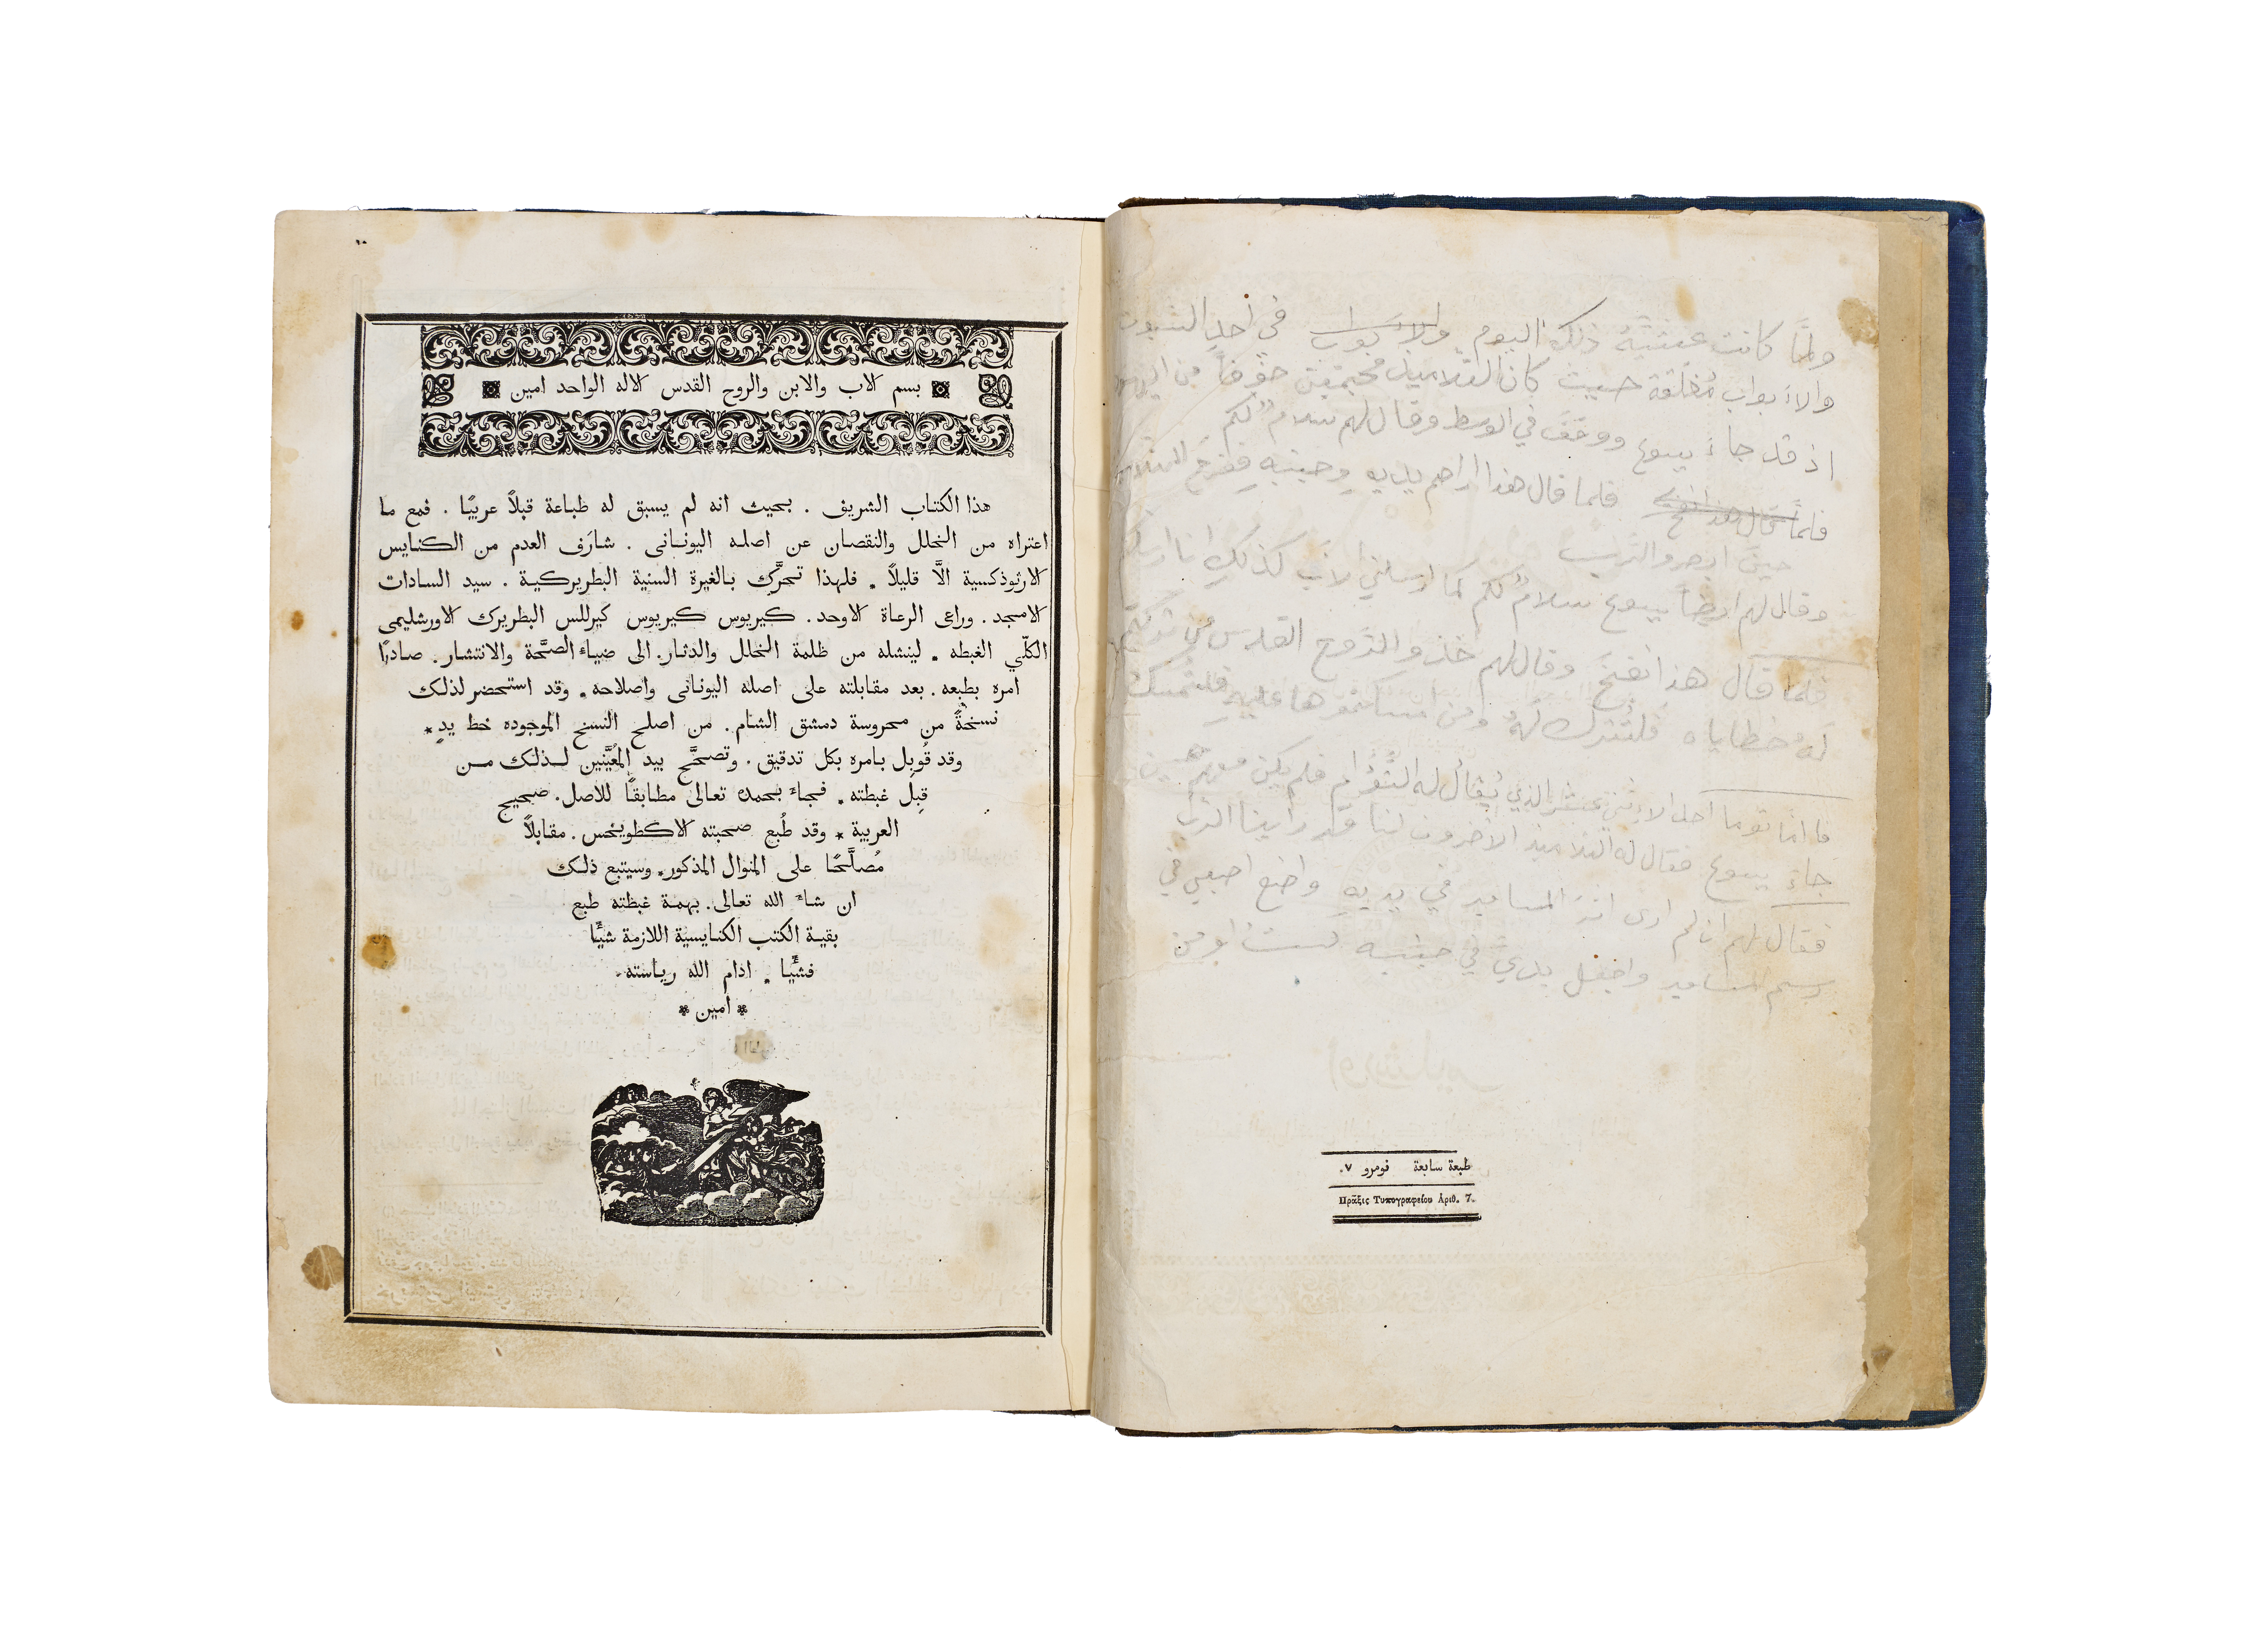 ولمَّا كانت عشيَّة ذلك اليوم والابواب في احد السبوت
والابواب مُغلّقة حيث كان التلاميذ مجتمعين خوفاً من اليهود
اذ قد جاءَ يسوع ووقف في الوسط وقال لهم سلامٌ لكم
فلما قال هذا اراهم يديه وجنبه ففرح التلاميذ
حين ابصروا الرب
وقال لهم ايضاً يسوع سلامٌ لكم كما ارسلني الاب كذلك انا ارسلكم
فلما قال هذا نفخ وقال لهم خذوا الروح القدس من تركتم
لهُ خطاياه فلتُترك لهُ ومن امسكتموها عليهِ فلتُمسك
فامَّا توما احد الاثني عشر الذي يُقال له التوام فلم يكن معهم حين
جاءَ يسوع فقال له التلاميذ الاخرون اننا قد راينا الرب
فقال لهم ان لم ارى اثر المسامير في يديه واضع اصبعي في
رسم المسامير واجعل يدي في جنبه لست اومن
اورشليم
طبعة سابعة نومرو ٧.
Πρᾶξις Τυπογραφείου Ἀριθ. 7.
بسم الاب والابن والروح القدس الاله الواحد امين
هذا الكتاب الشريف . بحيث انه لم يسبق له طباعة قبلاً عربيًا . فمع ما
اعتراه من الخلل والنقصان عن اصله اليونانى . شارَف العدم من الكنايس
الارثوذكسية الَّا قليلاً . فلهذا تحرَّك بالغيرة السنية البطريركية . سيد السادات
الامجد . وراعى الرعاة الاوحد . كيريوس كيريوس كيرللس البطريرك الاورشليمى
الكلّي الغبطه . لينشله من ظلمة الخلل والدثار. الى ضياءِ الصحَّة والانتشار . صادرًا
امره بطبعه . بعد مقابلته على اصله اليونانى واصلاحه . وقد استحضر لذلك
نسخةً من محروسة دمشق الشام . من اصلح النسخ الموجوده خط يدٍ *
وقد قُوبِل بامره بكل تدقيق . وتصحَّح بيد المُعيَّنين لـذلـك مـن
قِبل غبطته . فجاءَ بحمده تعالى مطابقًا للاصل . صحيح
العربية * وقد طُبع صحبته الاكطويخس . مقابلاً
مُصلَّحًا على المنوال المذكور . وسيتبع ذلك
ان شاءَ الله تعالى . بهمة غبطته طبع
بقية الكتب الكنايسية اللازمة شيًا
فشيًا . ادام الله رياسته
* امين *